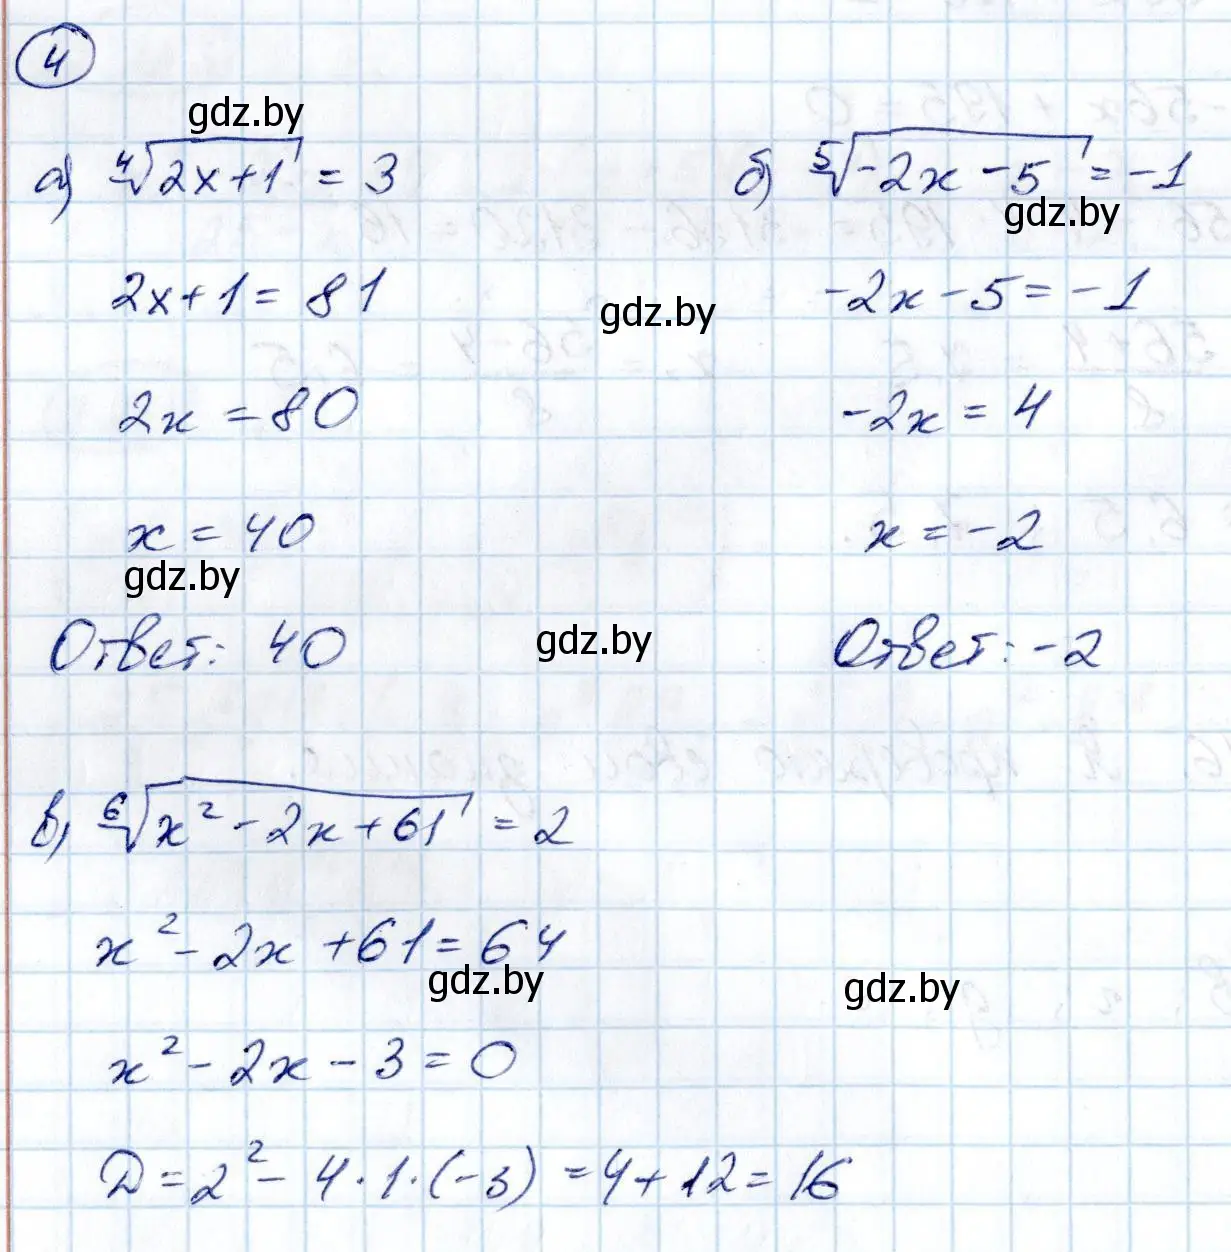 4
gdz.by
а) ∜2x+1 = 3
2x+1 = 81
2x = 80
x = 40
gdz.by
Ответ: 40
б) ⁵√-2x - 5 = -1
gdz.by
-2x - 5 = -1
gdz.by
-2x = 4
x = -2
gdz.by
Ответ: -2
в) ⁶√x² - 2x + 61 = 2
x² - 2x + 61 = 64
gdz.by
gdz.by
x² - 2x - 3 = 0
D = 2² - 4·1·(-3) = 4 + 12 = 16